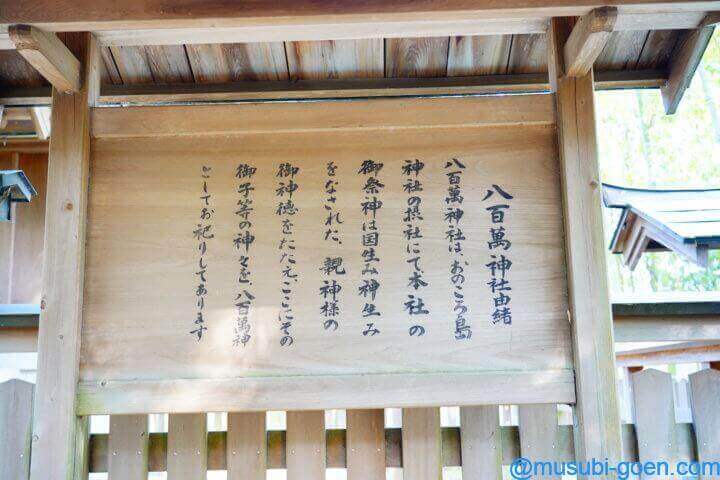 八百萬神社由緒
八百萬神社は、おのころ島
神社の摂社にて、本社の
御祭神は国生み神生み
をなされた、親神様の
御神徳をたたえ、ここにその
御子等の神々を、八百萬神
としてお祀りしてあります
@musubi-goen.com